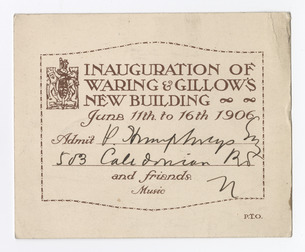 INAUGURATION OF
WARING & GILLOW'S
NEW BUILDING
June 11th to 16th 1906
Admit P Humphreys Esq
503 Caledonian Rd
and friends. N
Music
P.T.O.